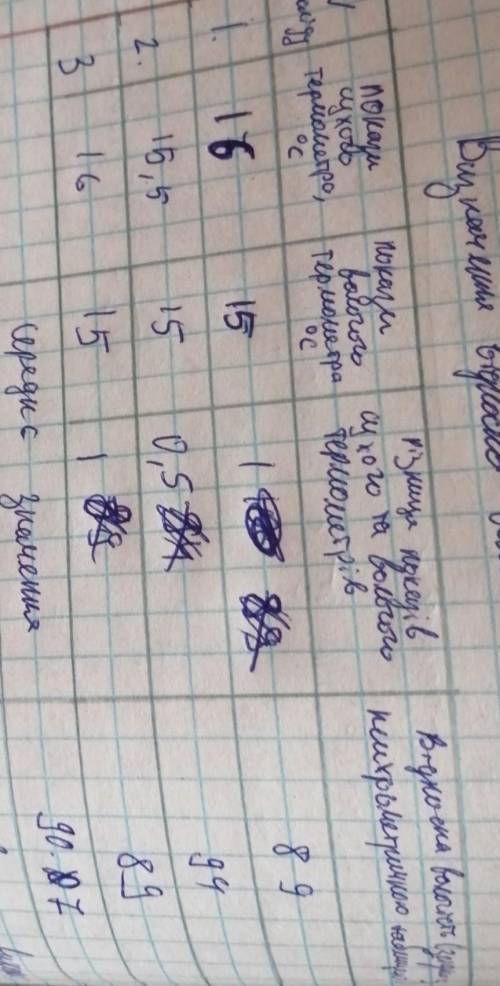 Визначення відносно
покази
сухого
термометра,
°C
покази
вологого
термометра
°C
різниця показів
сухого та вологого
термометрів
Відносна вологість
психрометричною
1.
16
15
1
89
2.
15,5
15
0,5
94
3
16
15
1
89
Середнє значення
90.7